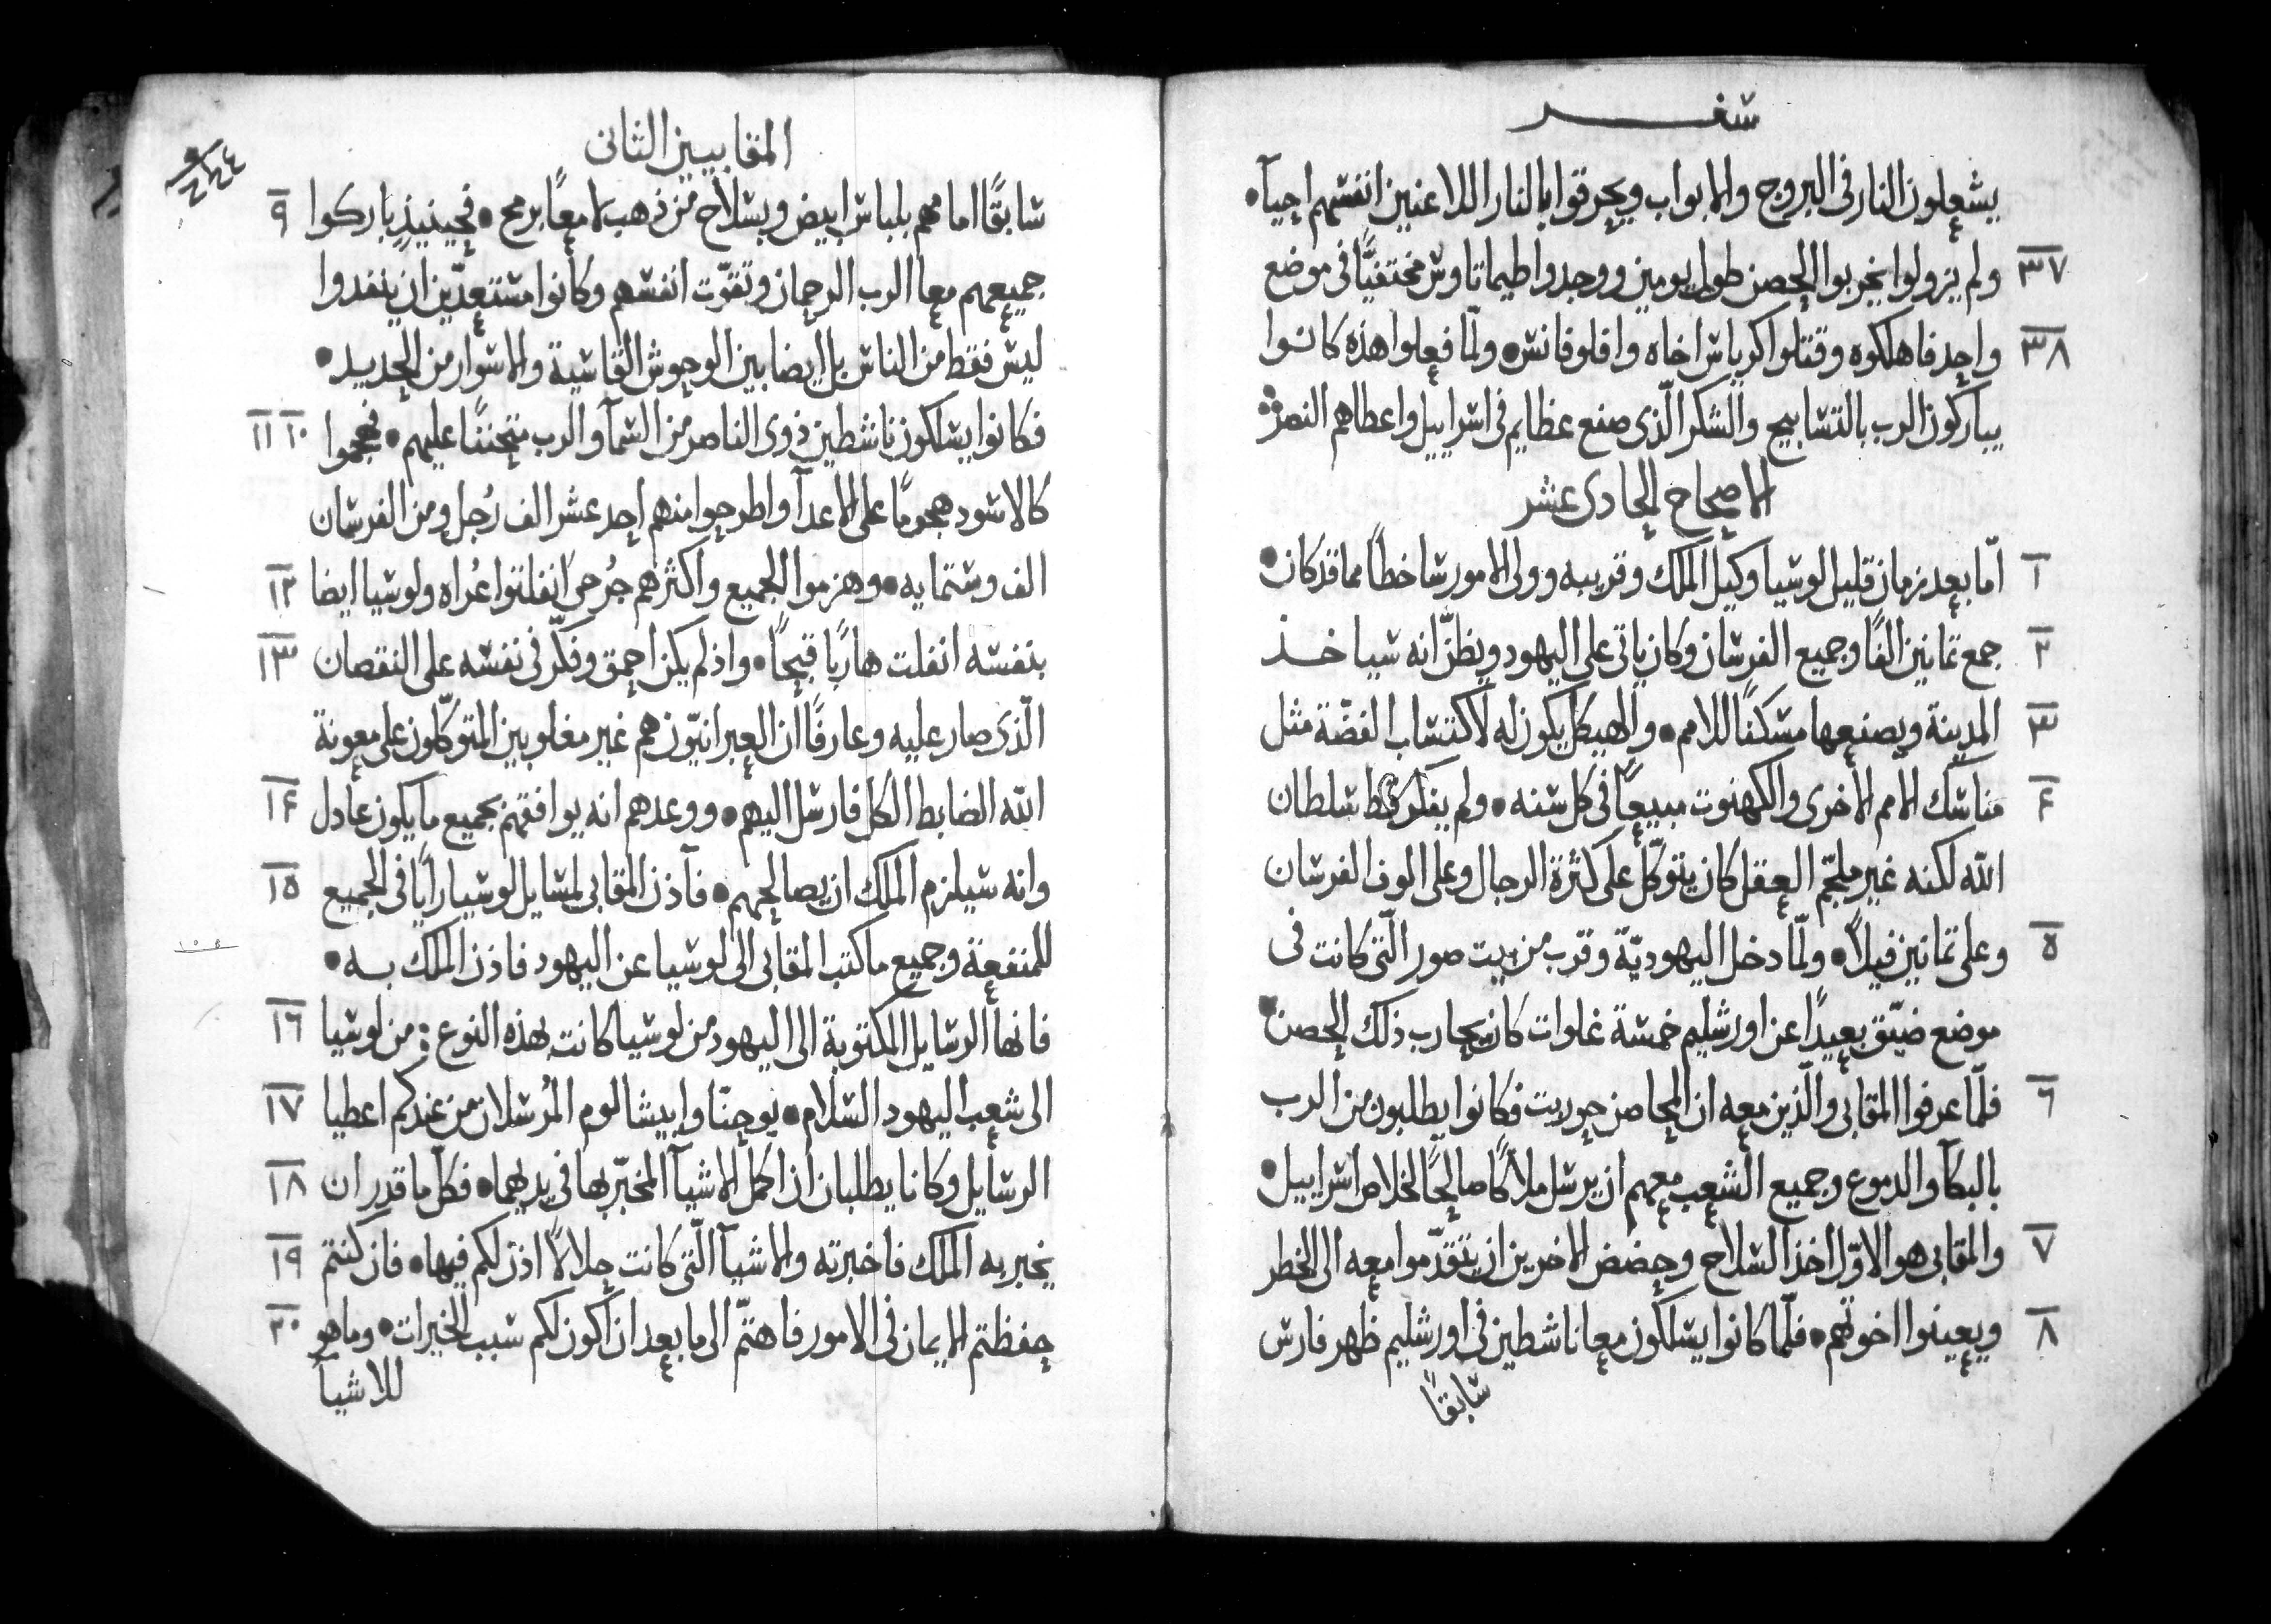 سفر
يشعلون النار في البروج والابواب ويحرقوا بالنار اللاعنين انفسهم احيآ •
٣٧ ولم يزولوا يخربوا الحصن طول يومين ووجدوا طيماتاوس مختفيًّا في موضع
٣٨ واحد فاهلكوه وقتلوا كرياس اخاه وافلوفانس • ولمّا فعلوا هذه كانوا
يباركون الرب بالتسابيح والشكر الّذي صنع عظايم في اسراييل واعطاهم النصر
الاصحاح الحادي عشر
١ امّا بعد زمان قليل لوسيا وكيل الملك وقريبه وولي الامور ساخطًا مما قد كان •
٢ جمع ثمانين الفًا وجميع الفرسان وكان ياتي علي اليهود ويظنّ انه سياخذ
٣ المدينة ويصنعها مسكنًا للامم • والهيكل يكون له لاكتساب الفضّة مثل
٤ مناسك الامم الاخري والكهنوت مبيعًا في كل سنه • ولم يفكر قط سلطان
الله لكنه غير ملجّم العقل كان يتوكّل علي كثرة الرجال وعلي الوف الفرسان
٥ وعلي ثمانين فيلاً • ولمّا دخل اليهوديّة وقرب من بيت صور الّتي كانت في
موضع ضيّق بعيدًا عن اورشليم خمسة غلوات كان يحارب ذلك الحصن •
٦ فلمّا عرفوا المقابي والّذين معه ان المحاصن حوربت فكانوا يطلبون من الرب
بالبكآ والدموع وجميع الشعب معهم ان يرسل ملاكًا صالحًا لخلاص اسراييل •
٧ والمقابي هو الاوّل اخذ السلاح وحضض الاخرين ان يتقدّموا معه الي الخطر
٨ ويعينوا اخوتهم • فلمّا كانوا يسلكون معا ناشطين في اورشليم ظهر فارس
سابقًا
المقابيين الثاني
٩ سابقًّا امامهم بلباس ابيض وبسلاح من ذهب لامعًا برمح • فحينيذٍ باركوا
جميعهم معا الرب الرحمان وتقوّت انفسهم وكانوا مستعدّين ان ينفدوا
ليس فقط من الناس بل ايضا بين الوحوش القاسية والاسوار من الحديد •
١٠ ١١ فكانوا يسلكون ناشطين ذوي الناصر من السمآ والرب متحننًا عليهم • فهجموا
كالاسود هجومًا علي الاعدآ واطرحوا منهم احد عشر الف رُجل ومن الفرسان
١٢ الف وستمايه • وهزموا الجميع واكثرهم جُرحي انفلتوا عُراه ولوسيا ايضا
١٣ بنفسه انفلت هاربًا قبيحًا • واذ لم يكن احمق وفكّر في نفسه علي النقصان
الّذي صار عليه وعارفًا ان العبرانيّون هم غير مغلوبين المتوكّلون علي معونة
١٤ الله الضابط الكل فارسل اليهم • ووعدهم انه يوافقهم بجميع ما يكون عادل
١٥ وانه سيلزم الملك ان يصالحهم • فآذن المقابي لمسايل لوسيا رايًا في الجميع
للمنفعة وجميع ما كتب المقابي الي لوسيا عن اليهود فاذن الملك به •
١٦ فانها الرسايل المكتوبة الي اليهود من لوسيا كانت بهذه النوع : من لوسيا
١٧ الي شعب اليهود السلام • يوحنّا وابيشالوم المُرسلان من عندكم اعطيا
١٨ الرسايل وكانا يطلبان ان اكمل الاشيآ المخبّر بها في يديهما • فكلّ ما قدر ان
١٩ يخبر به الملك فاخبرته والاشيآ الّتي كانت حلالاً اذن لكم فيها • فان كنتم
٢٠ حفظتم الايمان في الامور فاهتمّ الي ما بعد ان اكون لكم سبب الخيرات • وما هو
للاشيآ